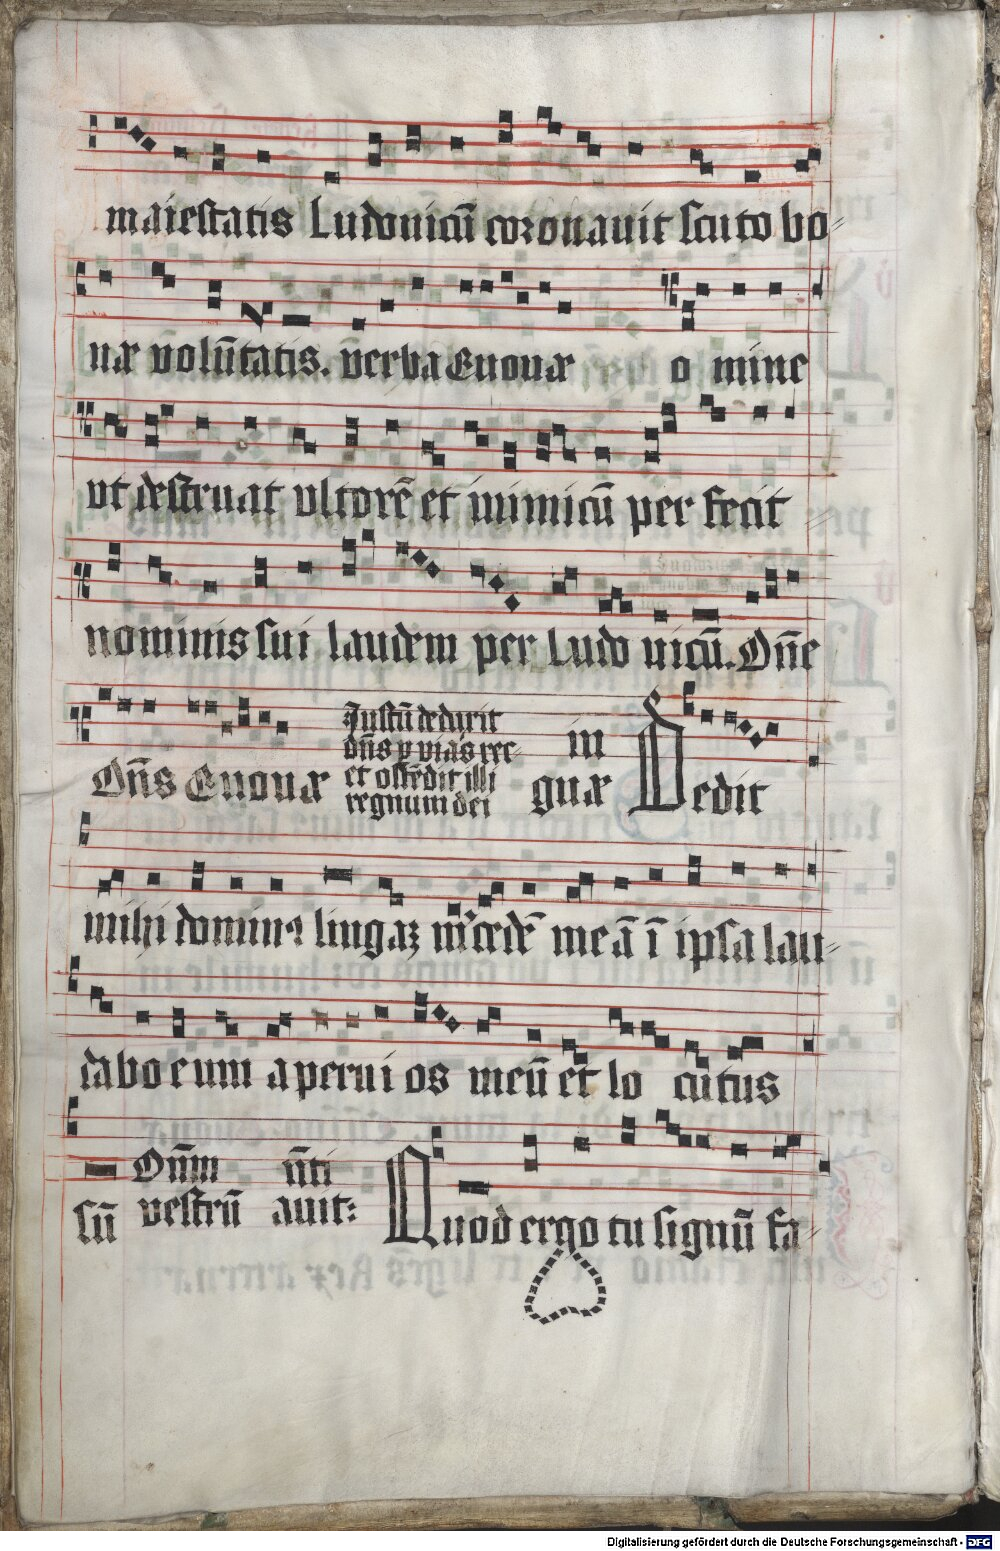 maiestatis Ludouicū coronauit scuto bo⸗
næ volūtatis. v̄erba Euouæ o mine
vt destruat vltorē et inimicū per fecit
nominis sui laudem per Ludo uicū. On̄e
On̄s Euouæ
Justū deduxit
dn̄s p vias rec⸗
et ostēdit illi
regnum dei
in
guæ Dedit
mihi domin⁹ lingaʒ m̓cedē meā ī ipsa lau⸗
dabo eum aperui os meū et lo cutus
sū On̄m n̄ti
vestrū auit:
Quod ergo tu signū fa⸗
Digitalisierung gefördert durch die Deutsche Forschungsgemeinschaft - DFG